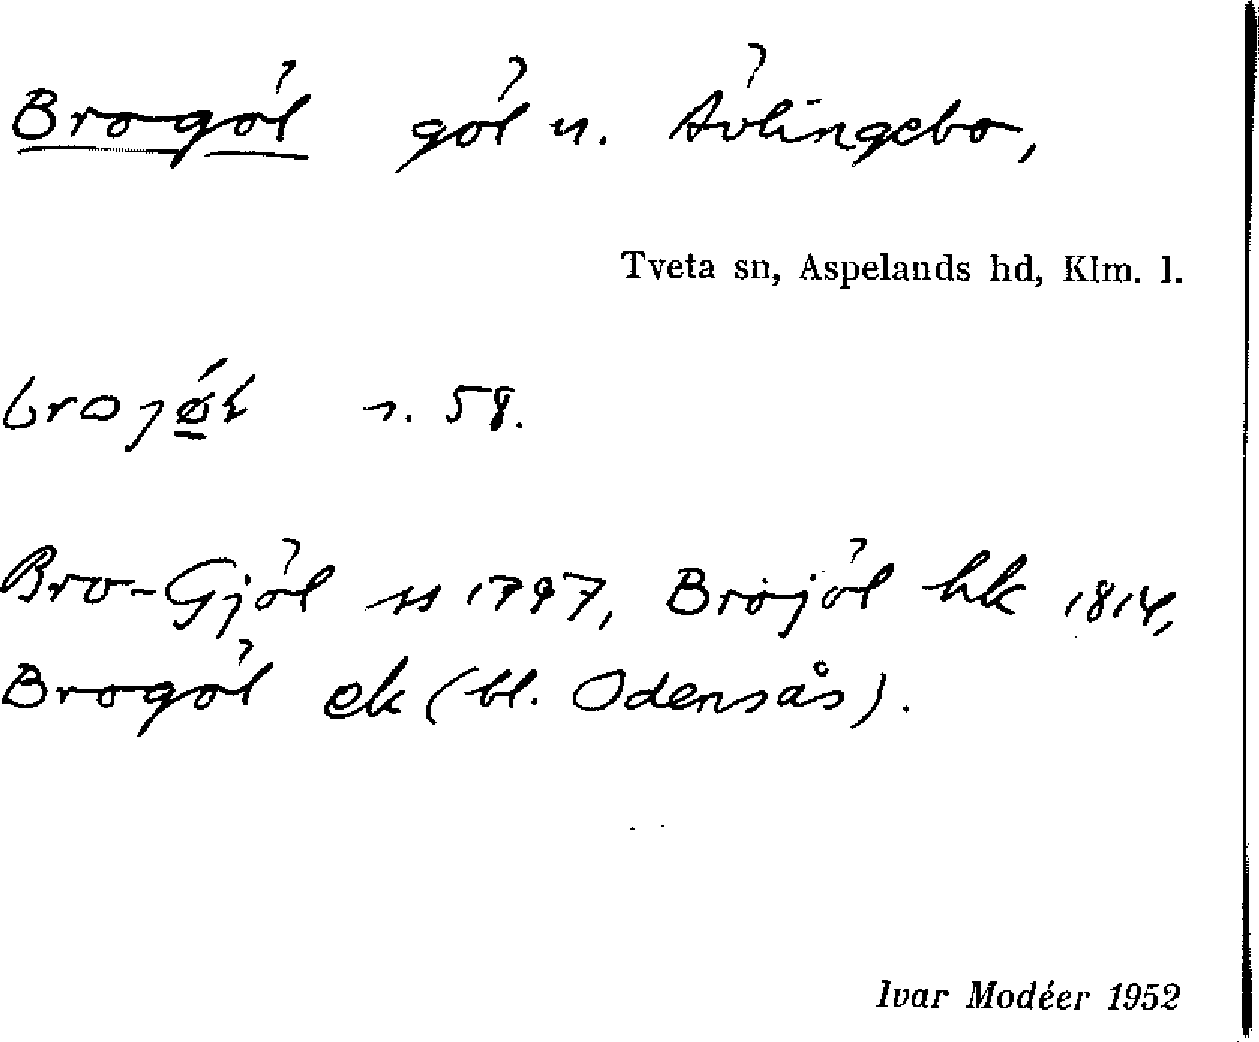 Brogöl göl n. Ävlingebo,
Tveta sn, Aspelands hd, Klm. l.
s. 58.
Bro-Gjöl ss 1797, Brojöl hk 1814,
Brogöl ek (bl. Odensås).
Ivar Modéer 1952